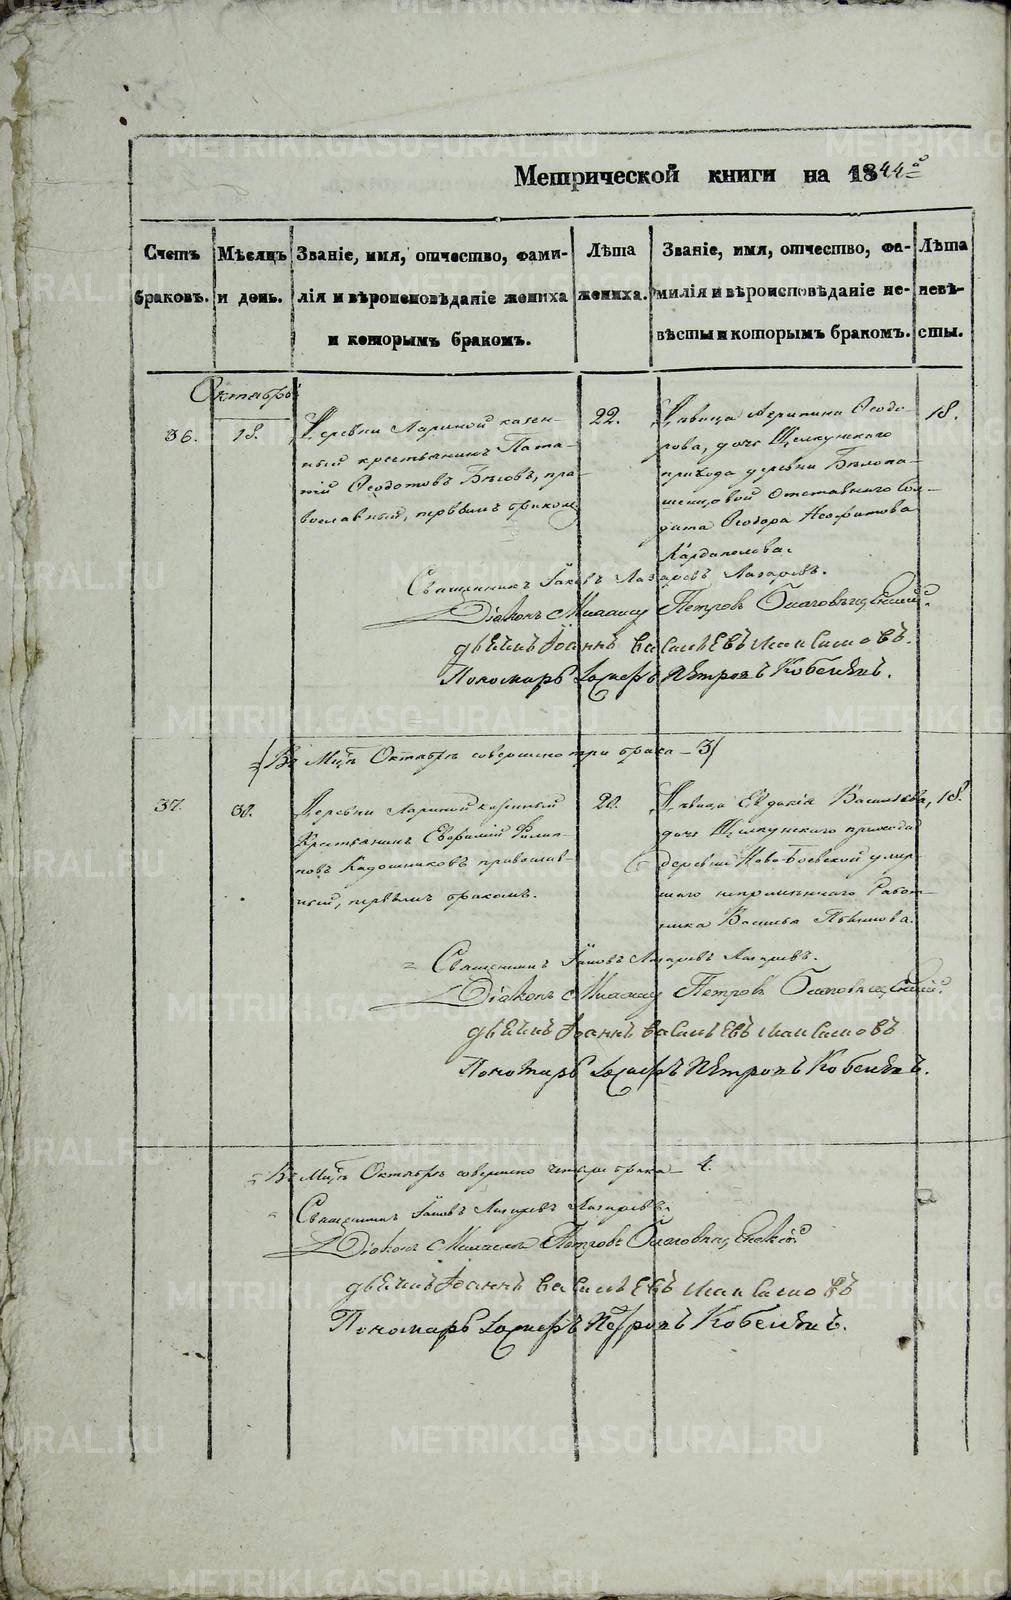 METRIKI.GASO-URAL.RU
Метрической книги на 1844й
Счетъ браковъ.
Мѣсяцъ и день.
Званіе, имя, отчество, фами-
лія и вѣроисповѣданіе жениха
и которымъ бракомъ.
Лѣта
жениха.
Званіе, имя, отчество, фа-
милія и вѣроисповѣданіе не-
вѣсты и которымъ бракомъ.
Лѣта
невѣ-
сты.
Октябрь
36.
18.
Деревни Лариной казен-
ный крестьянинъ
Ѳедотовъ Бѣловъ, пра-
вославный, первымъ бракомъ
22.
Дѣвица Агрипина Ѳеодо-
рова, дочь Щелкунскаго
прихода деревни
отставнаго сол-
дата Ѳеодора
Кардаполова.
18.
Священникъ Іаковъ Лазаревъ Лазаревъ.
Діаконъ Петровъ Благовѣщенскій.
Дьячикъ Іоаннъ Васильевъ Максимовъ.
Пономарь Петровъ Кобелевъ.
Въ Мцѣ Октябрѣ совершено три брака – 3
37.
30.
Деревни Лариной казенный
Крестьянинъ Евфимій Филип-
повъ Кадошниковъ православ-
ный, первымъ бракомъ.
20.
Дѣвица Евдокія Васильева,
дочь Щелкунскаго прихода
деревни Ново-Боевской умер-
шаго Работ-
ника Василья
18.
Священникъ Іаковъ Лазаревъ Лазаревъ.
Діаконъ Петровъ Благовѣщенскій.
Дьячикъ Іоаннъ Васильевъ Максимовъ
Пономарь Петровъ Кобелевъ.
Въ Мцѣ Октябрѣ совершено четыре брака – 4.
Священникъ Іаковъ Лазаревъ Лазаревъ
Діаконъ Петровъ Благовѣщенскій
Дьячикъ Іоаннъ Васильевъ Максимовъ
Пономарь Петровъ Кобелевъ.